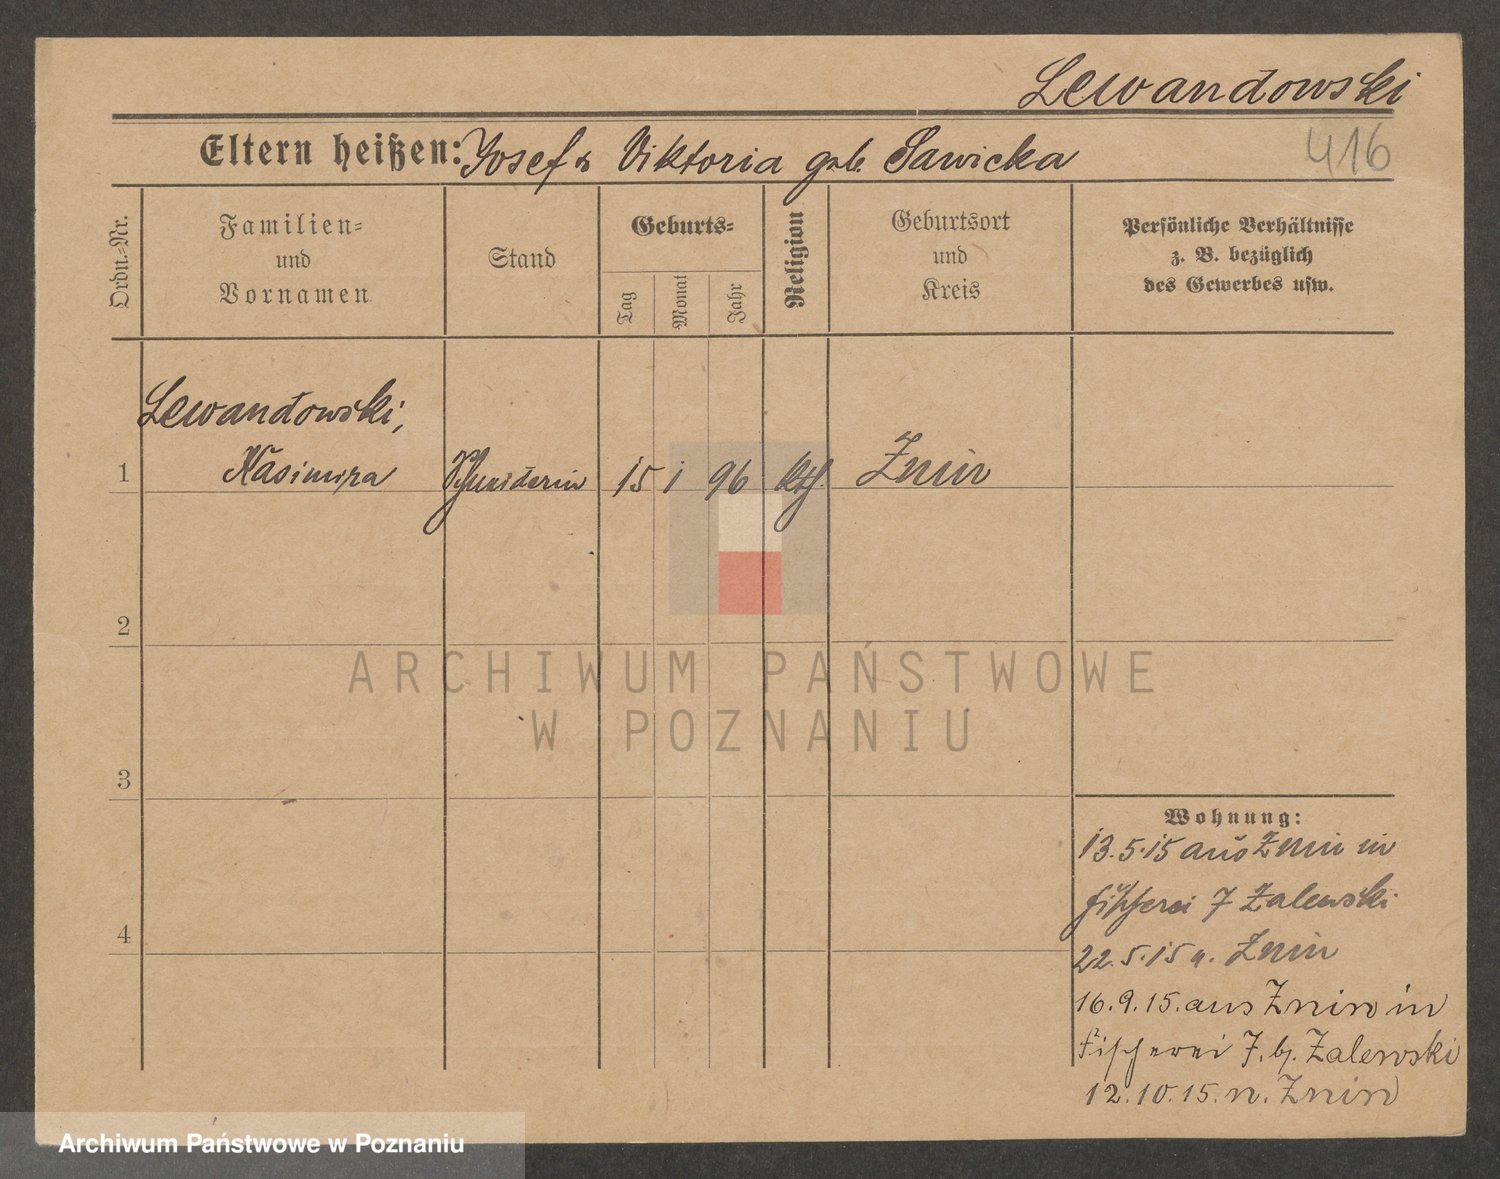 Lewandowski
Eltern heißen: Josef & Viktoria geb. Sawicka
416
Ordn.=Nr.
Familien=
und
Vornamen
Stand
Geburts=
Tag
Monat
Jahr
Religion
Geburtsort
und
Kreis
Persönliche Verhältnisse
z. B. bezüglich
des Gewerbes usw.
Lewandowski,
1 Kasimira Schneiderin 15 1 96 kth. Znin
2
3
4
ARCHIWUM PAŃSTWOWE
W POZNANIU
Wohnung:
13.5.15 aus Znin in
Fischerei 7 Zalewski
22.5.15 n. Znin
16.9.15. aus Znin in
Fischerei 7. b. Zalewski
12.10.15. n. Znin
Archiwum Państwowe w Poznaniu